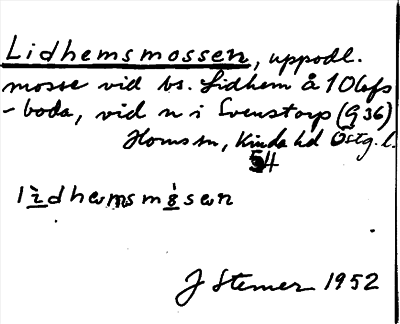 Lidhemsmossen, uppodl.
mosse vid bs. Lidhem å 1 Olofs
-boda, vid n i Svenstorp (G 36)
Horns sn, Kinda hd Östg. l.
54
J Stemer 1952